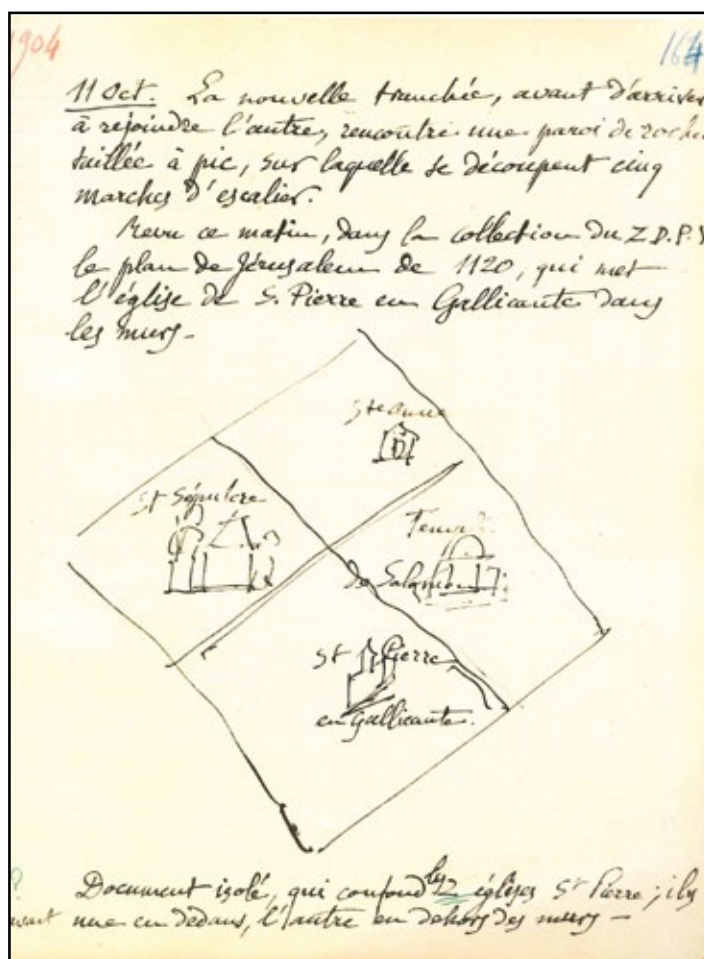 1904
164
11 Oct. La nouvelle tranchée, avant d'arriver
à rejoindre l'autre, rencontre une paroi de roche
taillée à pic, sur laquelle se découpent cinq
marches d'escalier.
Revu ce matin, dans la collection du Z.D.P.V
le plan de Jérusalem de 1120, qui met
l'église de S. Pierre en Gallicante dans
les murs -
Ste Anne
St Sépulcre
de Salomon
St Pierre
en Gallicante.
Document isolé, qui confond les 2 églises St Pierre; il y
avait une en dedans, l'autre en dehors des murs -